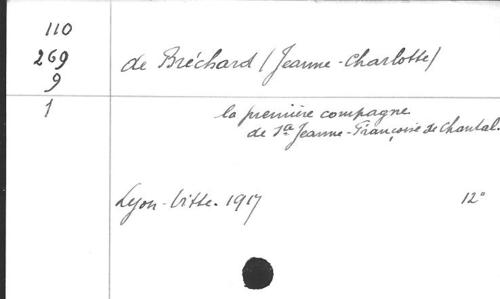 110
269
9
1
de Bréchard (Jeanne-Charlotte)
la première compagne
de Ste Jeanne-Françoise de Chantal.
Lyon-Vitte. 1917
12°